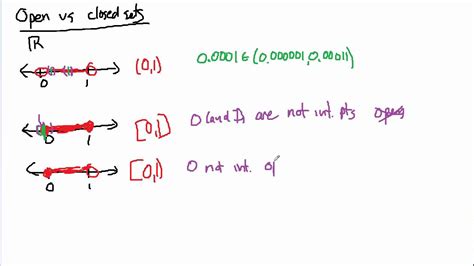 Open vs closed sets
ℝ
0 1 (0,1) 0.0001 ∈ (0.000001, 0.00011)
0 1 [0,1] 0 (and 1) are not int. pts
0 1 [0,1) 0 not int. of